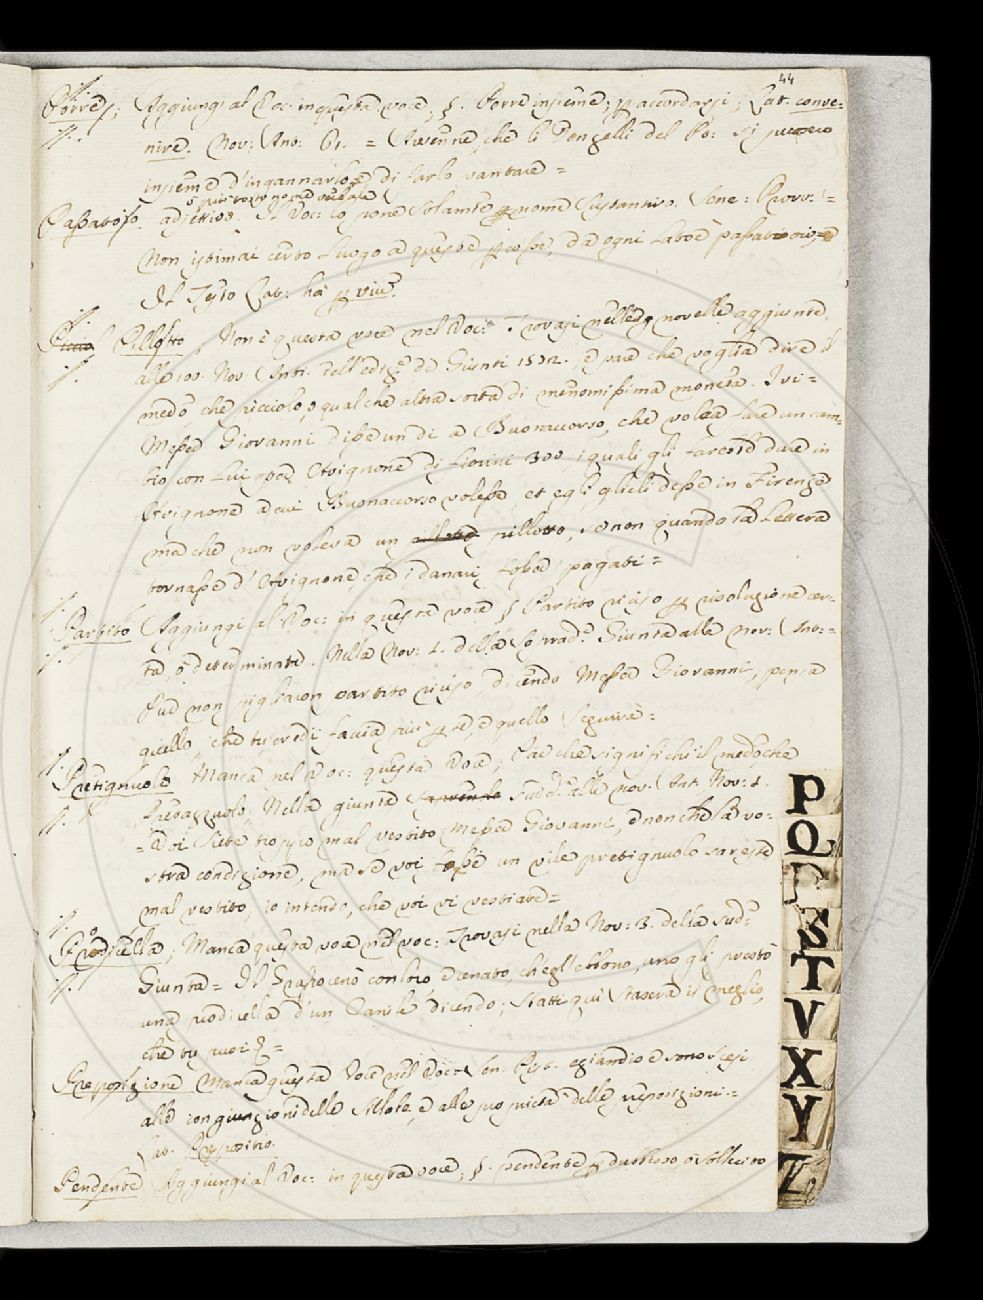 44
Porre, Aggiungi al Voc: in questa voce, §. Porre insieme; p accordarsi; Lat. conve=
nire. Nov: Ant: 61. = Avenne, che li Donzelli del Po: si puosero
insieme d'ingannarlo, e di farlo vantare =
Passatojo. adjettivo. Il Voc: lo pone solamte p nome sustantivo. Sene: Provv: =
Non istimai certo luogo a queste cose, da ogni latoe passatoio, =
Il Testo Lat: ha p
Pillotto, Non è questa voce nel Voc: Trovasi nelle novelle aggiunte
alle 100. Nov. Anti. dell'ediz.e de Giunti 1572. e pare che voglia dire il
medo che picciolo, o qualche altra sorta di menomissima moneta. Ivi =
Messer Giovanni disse un dì a Buonaccorso, che volea fare un cam=
bio con lui per Avignone di fiorini 300 i quali gli farebbe dare in
Avignone a cui Buonaccorso volesse, et egli glieli desse in Firenze
ma che non voleva un pillotto, se non quando la lettera
tornasse d'Avignone, che i danari fosse pagati =
Partito Aggiungi al Voc: in questa voce § Partito viciso p risoluzione cer=
ta, o determinata. Nella Nov: 1. della sopradᵃ. Giunta alle nov: Ant: =
Pure non pigliavon partito viciso, dicendo Messer Giovanni, pensa
quello, che tu credi faccia più p te, e quello seguirà =
Pretignuolo Manca nel Voc: questa voce; Par che significhi il medo che
Pretazzuolo. Nella giunta sudᵃ. alle nov. Ant. Nov: 1.
= Voi siete troppo mal vestito Messer Giovanni, e non che la vo=
stra condizione, ma se voi fosse un vile pretignuolo sareste
mal vestito, io intendo, che voi vi vestiate =
Prodicella, Manca questa voce nel Voc: Trovasi nella Nov: 3. della sudᵃ
Giunta = Il Grasso cenò con loro e cenato, ch'egl'ebbono, uno gli prestò
una prodicella d'un dicendo; Statti qui stasera il meglio,
che tu puoi =
Preposizione Manca questa voce nel Voc. Sen. Pist. eziandio e sono scesi
alle congiunzioni delle sillabe, e alle propietà delle preposizioni. =
Lat. Prepositio.
Pendente Aggiungi al Voc: in questa voce, §. pendente p dubbioso, o sollecito
P
Q
R
S
T
V
X
Y
Z